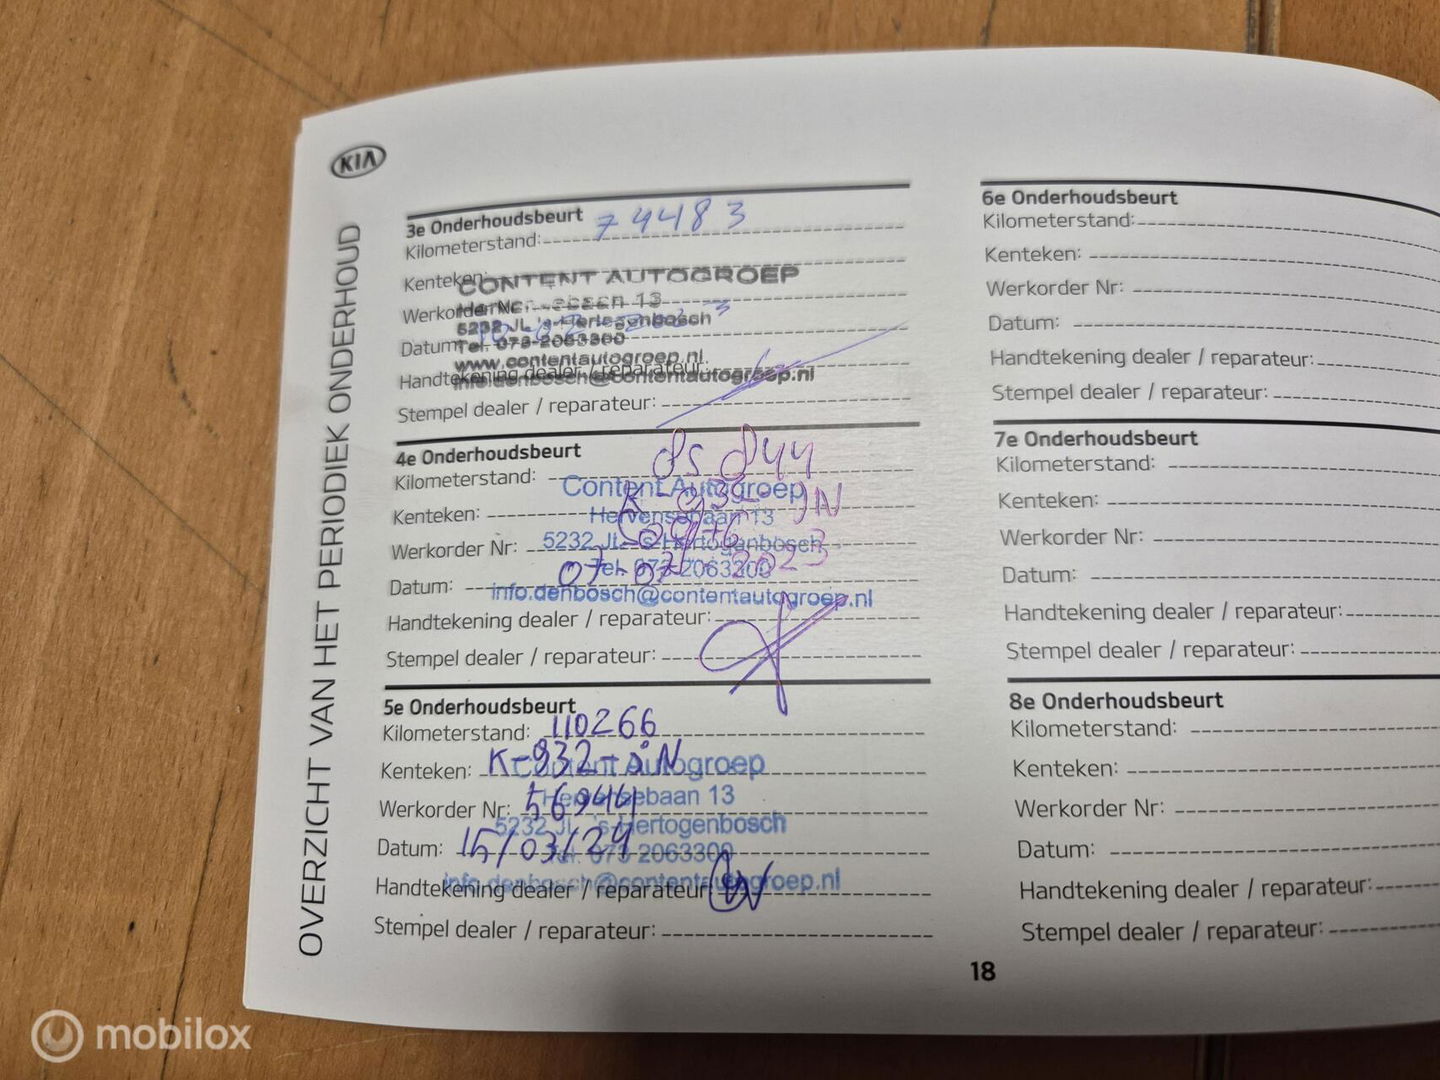 KIA
OVERZICHT VAN HET PERIODIEK ONDERHOUD
3e Onderhoudsbeurt
Kilometerstand: 74483
Kenteken:
CONTENT AUTOGROEP
Werkorder Nr: 13
5232 JL 's-Hertogenbosch
Datum:
Tel. 073-2063300
www.contentautogroep.nl
Handtekening dealer / reparateur:
info.denbosch@contentautogroep.nl
Stempel dealer / reparateur:
4e Onderhoudsbeurt
Kilometerstand: 85844
Content Autogroep
Kenteken:
Hervensebaan 13
Werkorder Nr:
5232 JL 's-Hertogenbosch
Tel. 073 2063300
Datum: 2023
info.denbosch@contentautogroep.nl
Handtekening dealer / reparateur:
Stempel dealer / reparateur:
5e Onderhoudsbeurt
Kilometerstand: 110266
Kenteken: K-932-
Content Autogroep
Hervensebaan 13
Werkorder Nr: 56944
5232 JL 's-Hertogenbosch
Datum: 15/03/24
Tel. 073 2063300
info.denbosch@contentautogroep.nl
Handtekening dealer / reparateur:
Stempel dealer / reparateur:
6e Onderhoudsbeurt
Kilometerstand:
Kenteken:
Werkorder Nr:
Datum:
Handtekening dealer / reparateur:
Stempel dealer / reparateur:
7e Onderhoudsbeurt
Kilometerstand:
Kenteken:
Werkorder Nr:
Datum:
Handtekening dealer / reparateur:
Stempel dealer / reparateur:
8e Onderhoudsbeurt
Kilometerstand:
Kenteken:
Werkorder Nr:
Datum:
Handtekening dealer / reparateur:
Stempel dealer / reparateur:
18
mobilox